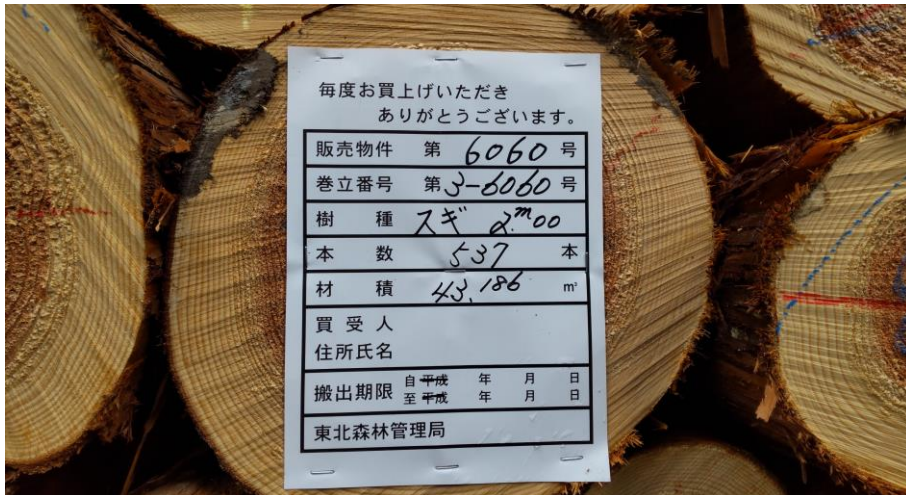 毎度お買上げいただき
ありがとうございます。
販売物件 第 6060 号
巻立番号 第 3-6060 号
樹種 スギ 2.m00
本数 537 本
材積 43.186 m³
買受人
住所氏名
搬出期限 自 平成 年 月 日
至 平成 年 月 日
東北森林管理局